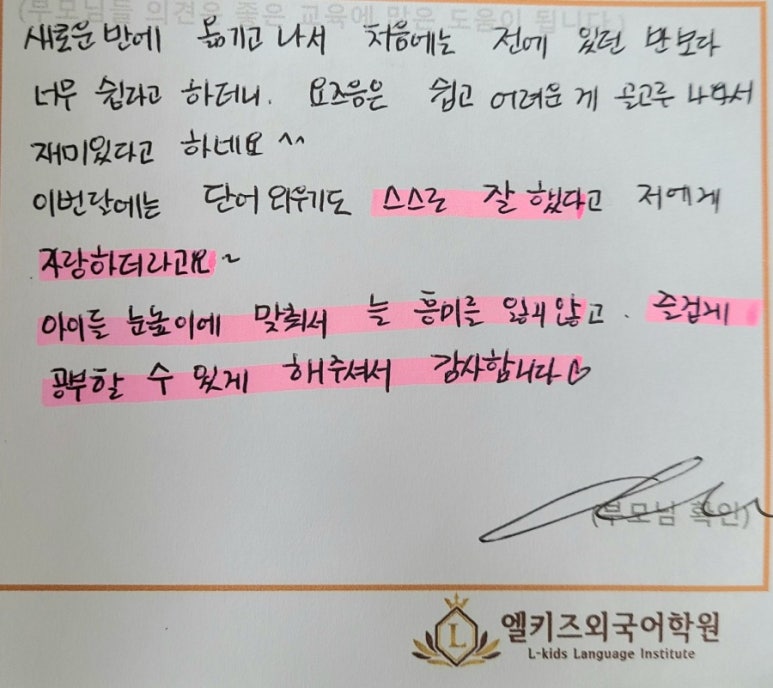 (부모님들 의견은 좋은 교육에 많은 도움이 됩니다.)
새로운 반에 옮기고 나서 처음에는 전에 있던 반보다
너무 쉽다고 하더니. 요즈음은 쉽고 어려운 게 골고루 나와서
재미있다고 하네요 ^^
이번달에는 단어 외우기도 스스로 잘 했다고 저에게
자랑하더라고요~
아이들 눈높이에 맞춰서 늘 흥미를 잃지않고. 즐겁게
공부할 수 있게 해주셔서 감사합니다♡
(부모님 확인)
L
엘키즈외국어학원
L-kids Language Institute